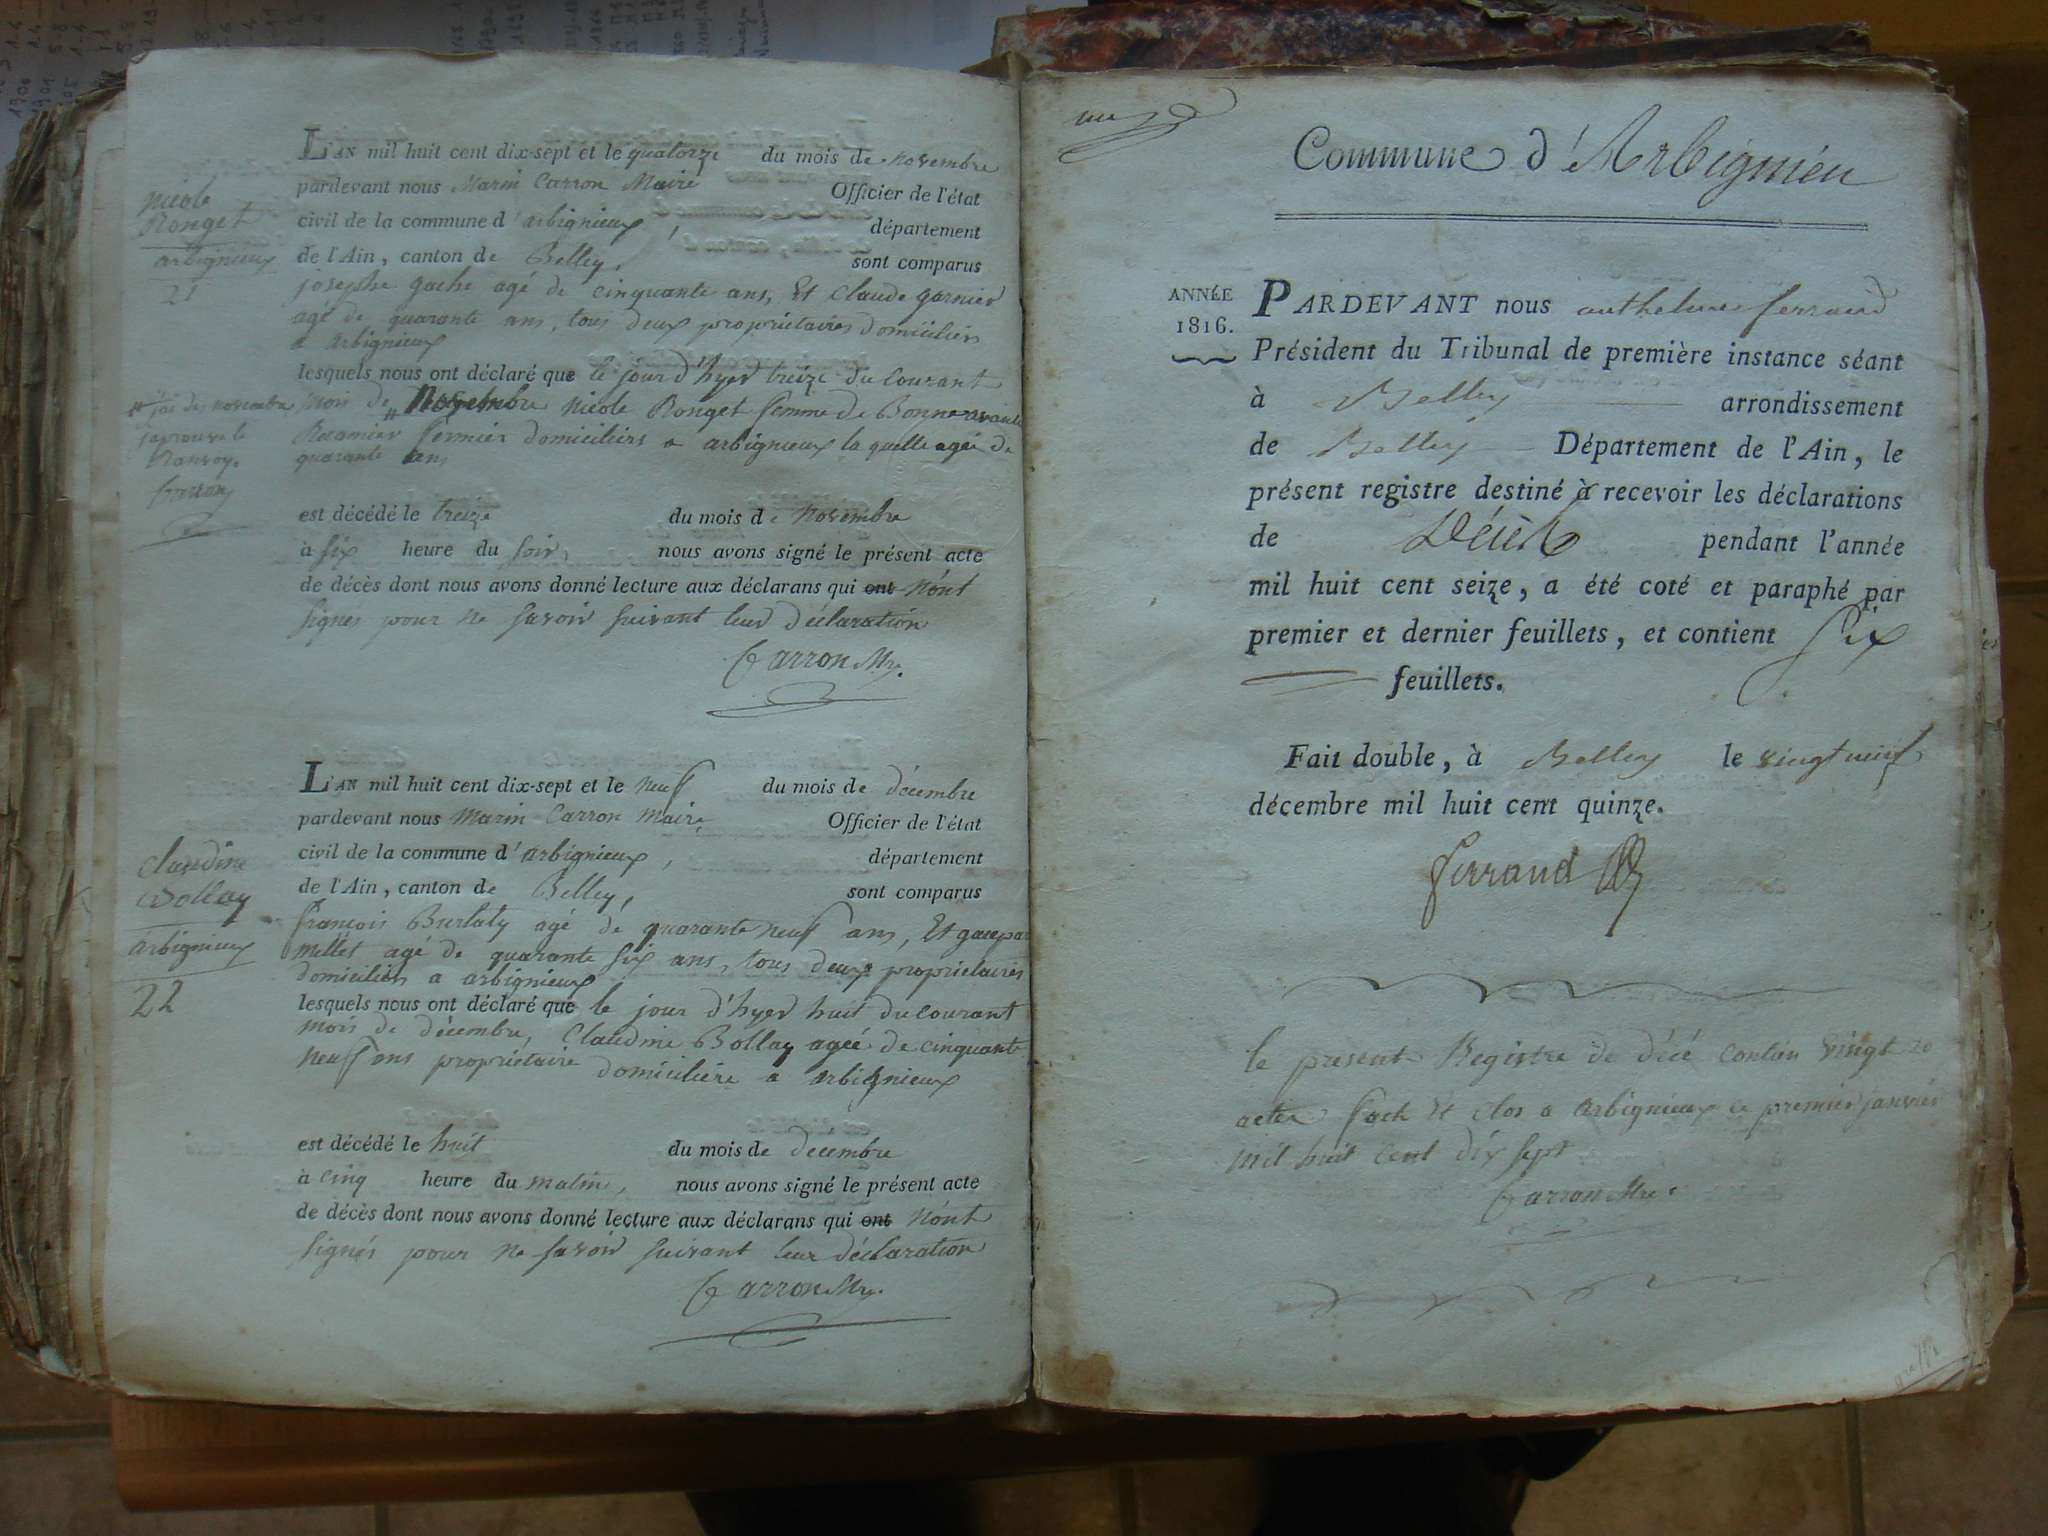 nicole
Ronget
arbignieux
21
L'AN mil huit cent dix-sept et le quatorze du mois de novembre
pardevant nous Marin Carron Maire Officier de l'état
civil de la commune d'arbignieux, département
de l'Ain, canton de Belley, sont comparus
josephe gache agé de cinquante ans, Et Claude garnier
agé de quarante ans, tous deux propriétaires domiciliés
a arbignieux
lesquels nous ont déclaré que le jour d'hyer treize du courant
mois de Novembre nicole Ronget femme de Bonneavanture
fermier domiciliers a arbignieux la quelle agée de
quarante ans
japrouve le
Ranvoy.
Carron
est décédé le treize du mois de novembre
à six heure du soir, nous avons signé le présent acte
de décès dont nous avons donné lecture aux déclarans qui ont n'ont
signés pour ne savoir suivant leur déclaration
Carron Mre.
Claudine
Bollay
arbignieux
22
L'AN mil huit cent dix-sept et le neuf du mois de décembre
pardevant nous Marin Carron Maire Officier de l'état
civil de la commune d'arbignieux, département
de l'Ain, canton de Belley, sont comparus
françois Burlaty agé de quarante neuf ans, Et gaspar
millet agé de quarante six ans, tous deux propriétaires
domiciliés a arbignieux
lesquels nous ont déclaré que le jour d'hyer huit du courant
mois de décembre, Claudine Bollay agée de cinquante
neuf ans propriétaire domiciliére a arbignieux
est décédé le huit du mois de décembre
à cinq heure du matin, nous avons signé le présent acte
de décès dont nous avons donné lecture aux déclarans qui ont n'ont
signés pour ne savoir suivant leur déclaration
Carron Mre.
Commune d'Arbignieu
ANNÉE
1816.
PARDEVANT nous anthelme ferrand
Président du Tribunal de première instance séant
à Belley arrondissement
de Belley Département de l'Ain, le
présent registre destiné à recevoir les déclarations
de Décès pendant l'année
mil huit cent seize, a été coté et paraphé par
premier et dernier feuillets, et contient six
feuillets.
Fait double, à Belley le vingt neuf
décembre mil huit cent quinze.
ferrand
le present Registre de décé contien vingt 20
actes fach et clos a arbignieux ce premier janvier
mil huit cent dix sept
Carron Mre.